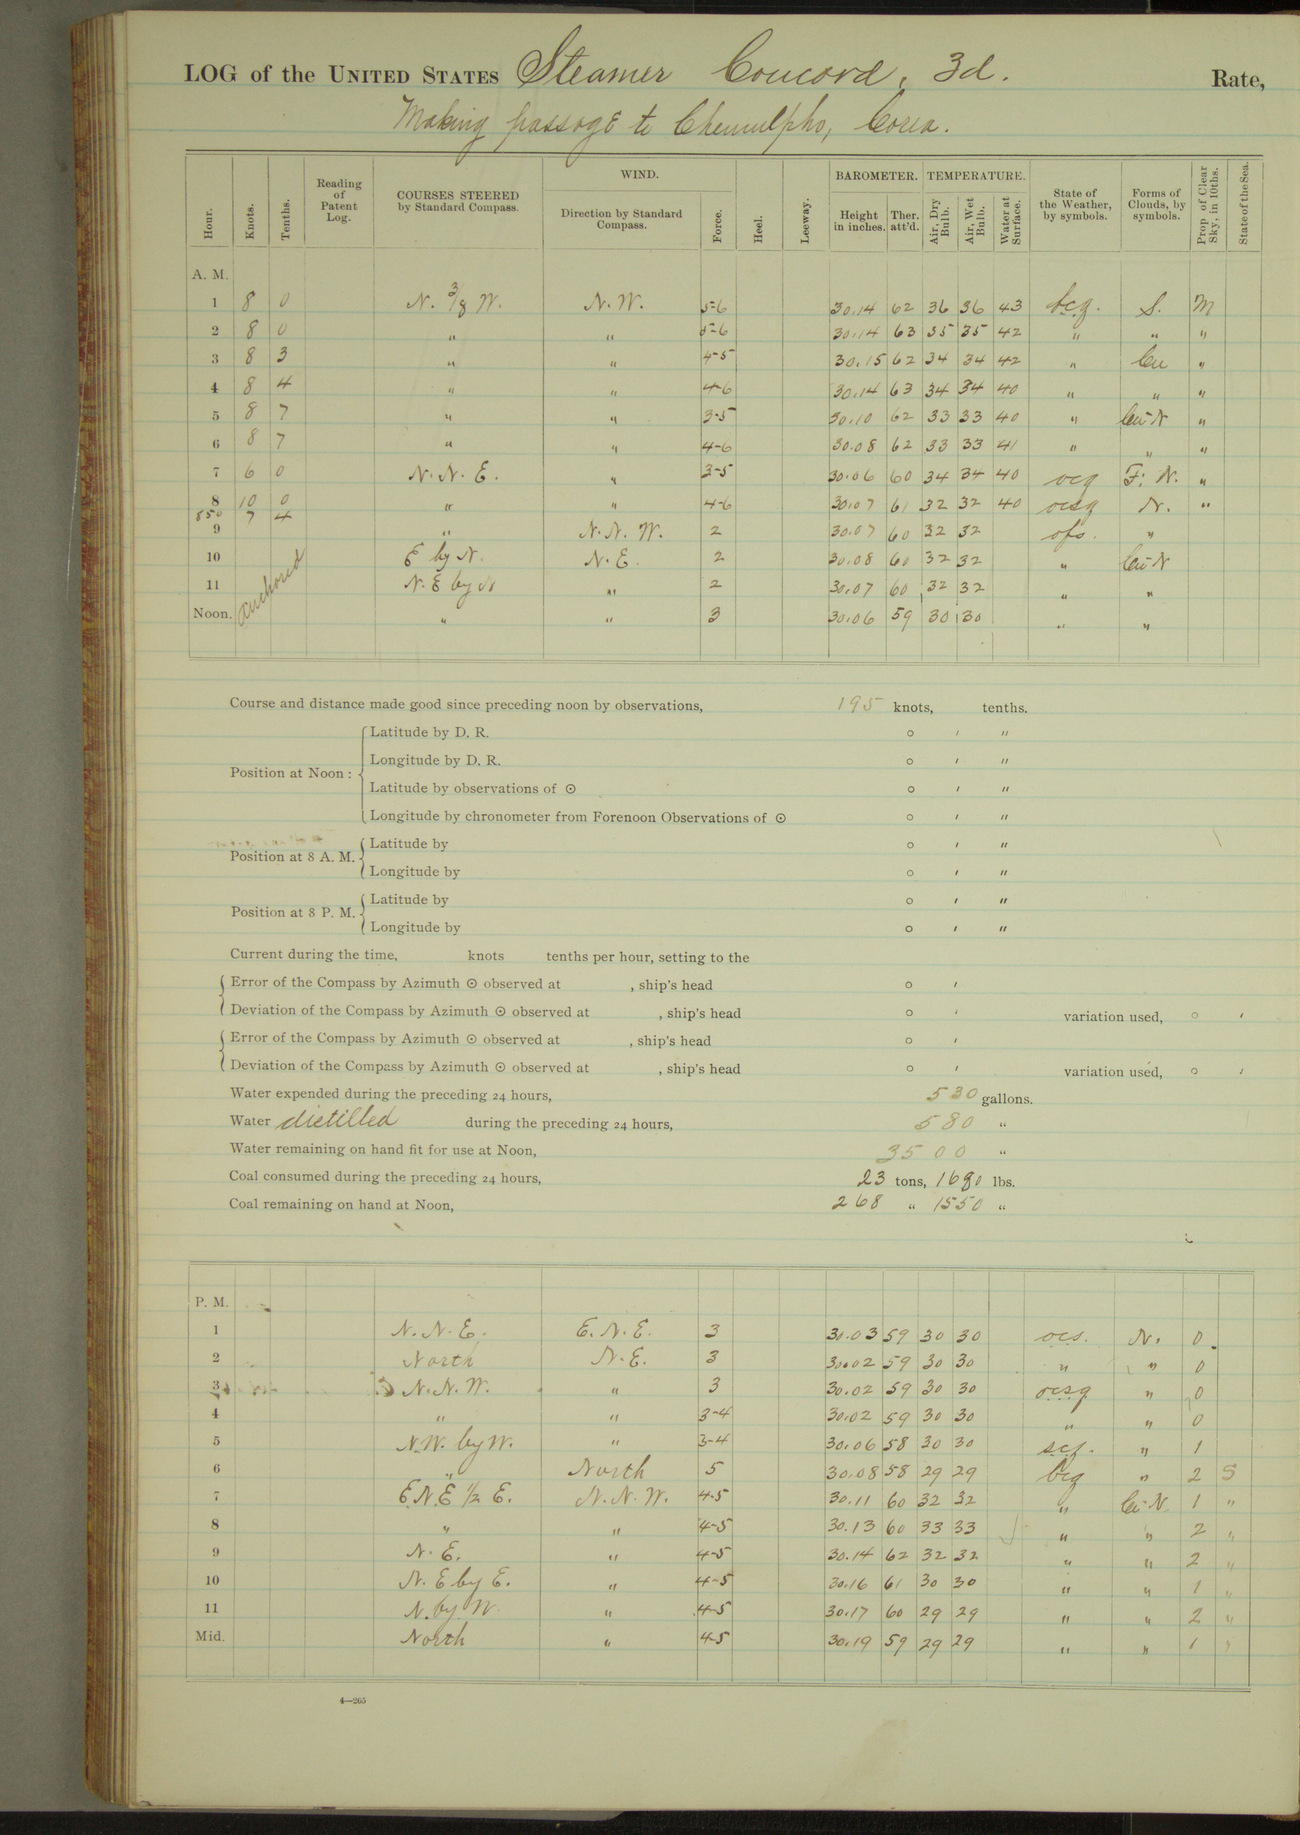 LOG of the UNITED STATES Steamer Concord, 3d. Rate,
Making passage to Chemulpho, Corea.
Hour. Knots. Tenths. Reading of Patent Log. COURSES STEERED by Standard Compass. WIND. Direction by Standard Compass. Force. Heel. Leeway. BAROMETER. Height in inches. Ther. att'd. TEMPERATURE. Air, Dry Bulb. Air, Wet Bulb. Water at Surface. State of the Weather, by symbols. Forms of Clouds, by symbols. Prop. of Clear Sky, in 10ths. State of the Sea.
A. M.
1 8 0 N. 3/8 W. N.W. 5-6 30.14 62 36 36 43 bcq. S. M
2 8 0 " " 5-6 30.14 63 35 35 42 " " "
3 8 3 " " 4-5 30.15 62 34 34 42 " Cu "
4 8 4 " " 4-6 30.14 63 34 34 40 " " "
5 8 7 " " 3-5 30.10 62 33 33 40 " Cu-N "
6 8 7 " " 4-6 30.08 62 33 33 41 " " "
7 6 0 N.N.E. " 3-5 30.06 60 34 34 40 ocq F. N. "
8 10 0 " " 4-6 30.07 61 32 32 40 ocsq N. "
8 50 9 7 4 " N.N.W. 2 30.07 60 32 32 ofs. "
10 E by N. N.E. 2 30.08 60 32 32 " Cu-N
11 Anchored N.E by N " 2 30.07 60 32 32 " "
Noon. " " 3 30.06 59 30 30 " "
Course and distance made good since preceding noon by observations, 195 knots, tenths.
Position at Noon: Latitude by D. R. ° ′ ″
Longitude by D. R. ° ′ ″
Latitude by observations of ⊙ ° ′ ″
Longitude by chronometer from Forenoon Observations of ⊙ ° ′ ″
Position at 8 A. M. Latitude by ° ′ ″
Longitude by ° ′ ″
Position at 8 P. M. Latitude by ° ′ ″
Longitude by ° ′ ″
Current during the time, knots tenths per hour, setting to the
Error of the Compass by Azimuth ⊙ observed at , ship's head ° ′
Deviation of the Compass by Azimuth ⊙ observed at , ship's head ° ′ variation used, ° ′
Error of the Compass by Azimuth ⊙ observed at , ship's head ° ′
Deviation of the Compass by Azimuth ⊙ observed at , ship's head ° ′ variation used, ° ′
Water expended during the preceding 24 hours, 530 gallons.
Water distilled during the preceding 24 hours, 580 "
Water remaining on hand fit for use at Noon, 3500 "
Coal consumed during the preceding 24 hours, 23 tons, lbs.
Coal remaining on hand at Noon, 268 " 1550 "
P. M.
1 N.N.E. E.N.E. 3 30.03 59 30 30 ocs. N. 0
2 North N.E. 3 30.02 59 30 30 " " 0
3 N.N.W. " 3 30.02 59 30 30 ocsq " 0
4 " " 3-4 30.02 59 30 30 " " 0
5 N.W. by W. " 3-4 30.06 58 30 30 " 1
6 " North 5 30.08 58 29 29 bcq " 2 S
7 E.N.E 1/2 E. N.N.W. 4-5 30.11 60 32 32 " Cu-N 1 "
8 " " 4-5 30.13 60 33 33 " " 2 "
9 N.E. " 4-5 30.14 62 32 32 " " 2 "
10 N.E by E. " 4-5 30.16 61 30 30 " " 1 "
11 N. by W. " 4-5 30.17 60 29 29 " " 2 "
Mid. North " 4-5 30.19 59 29 29 " " 1 "
4—265